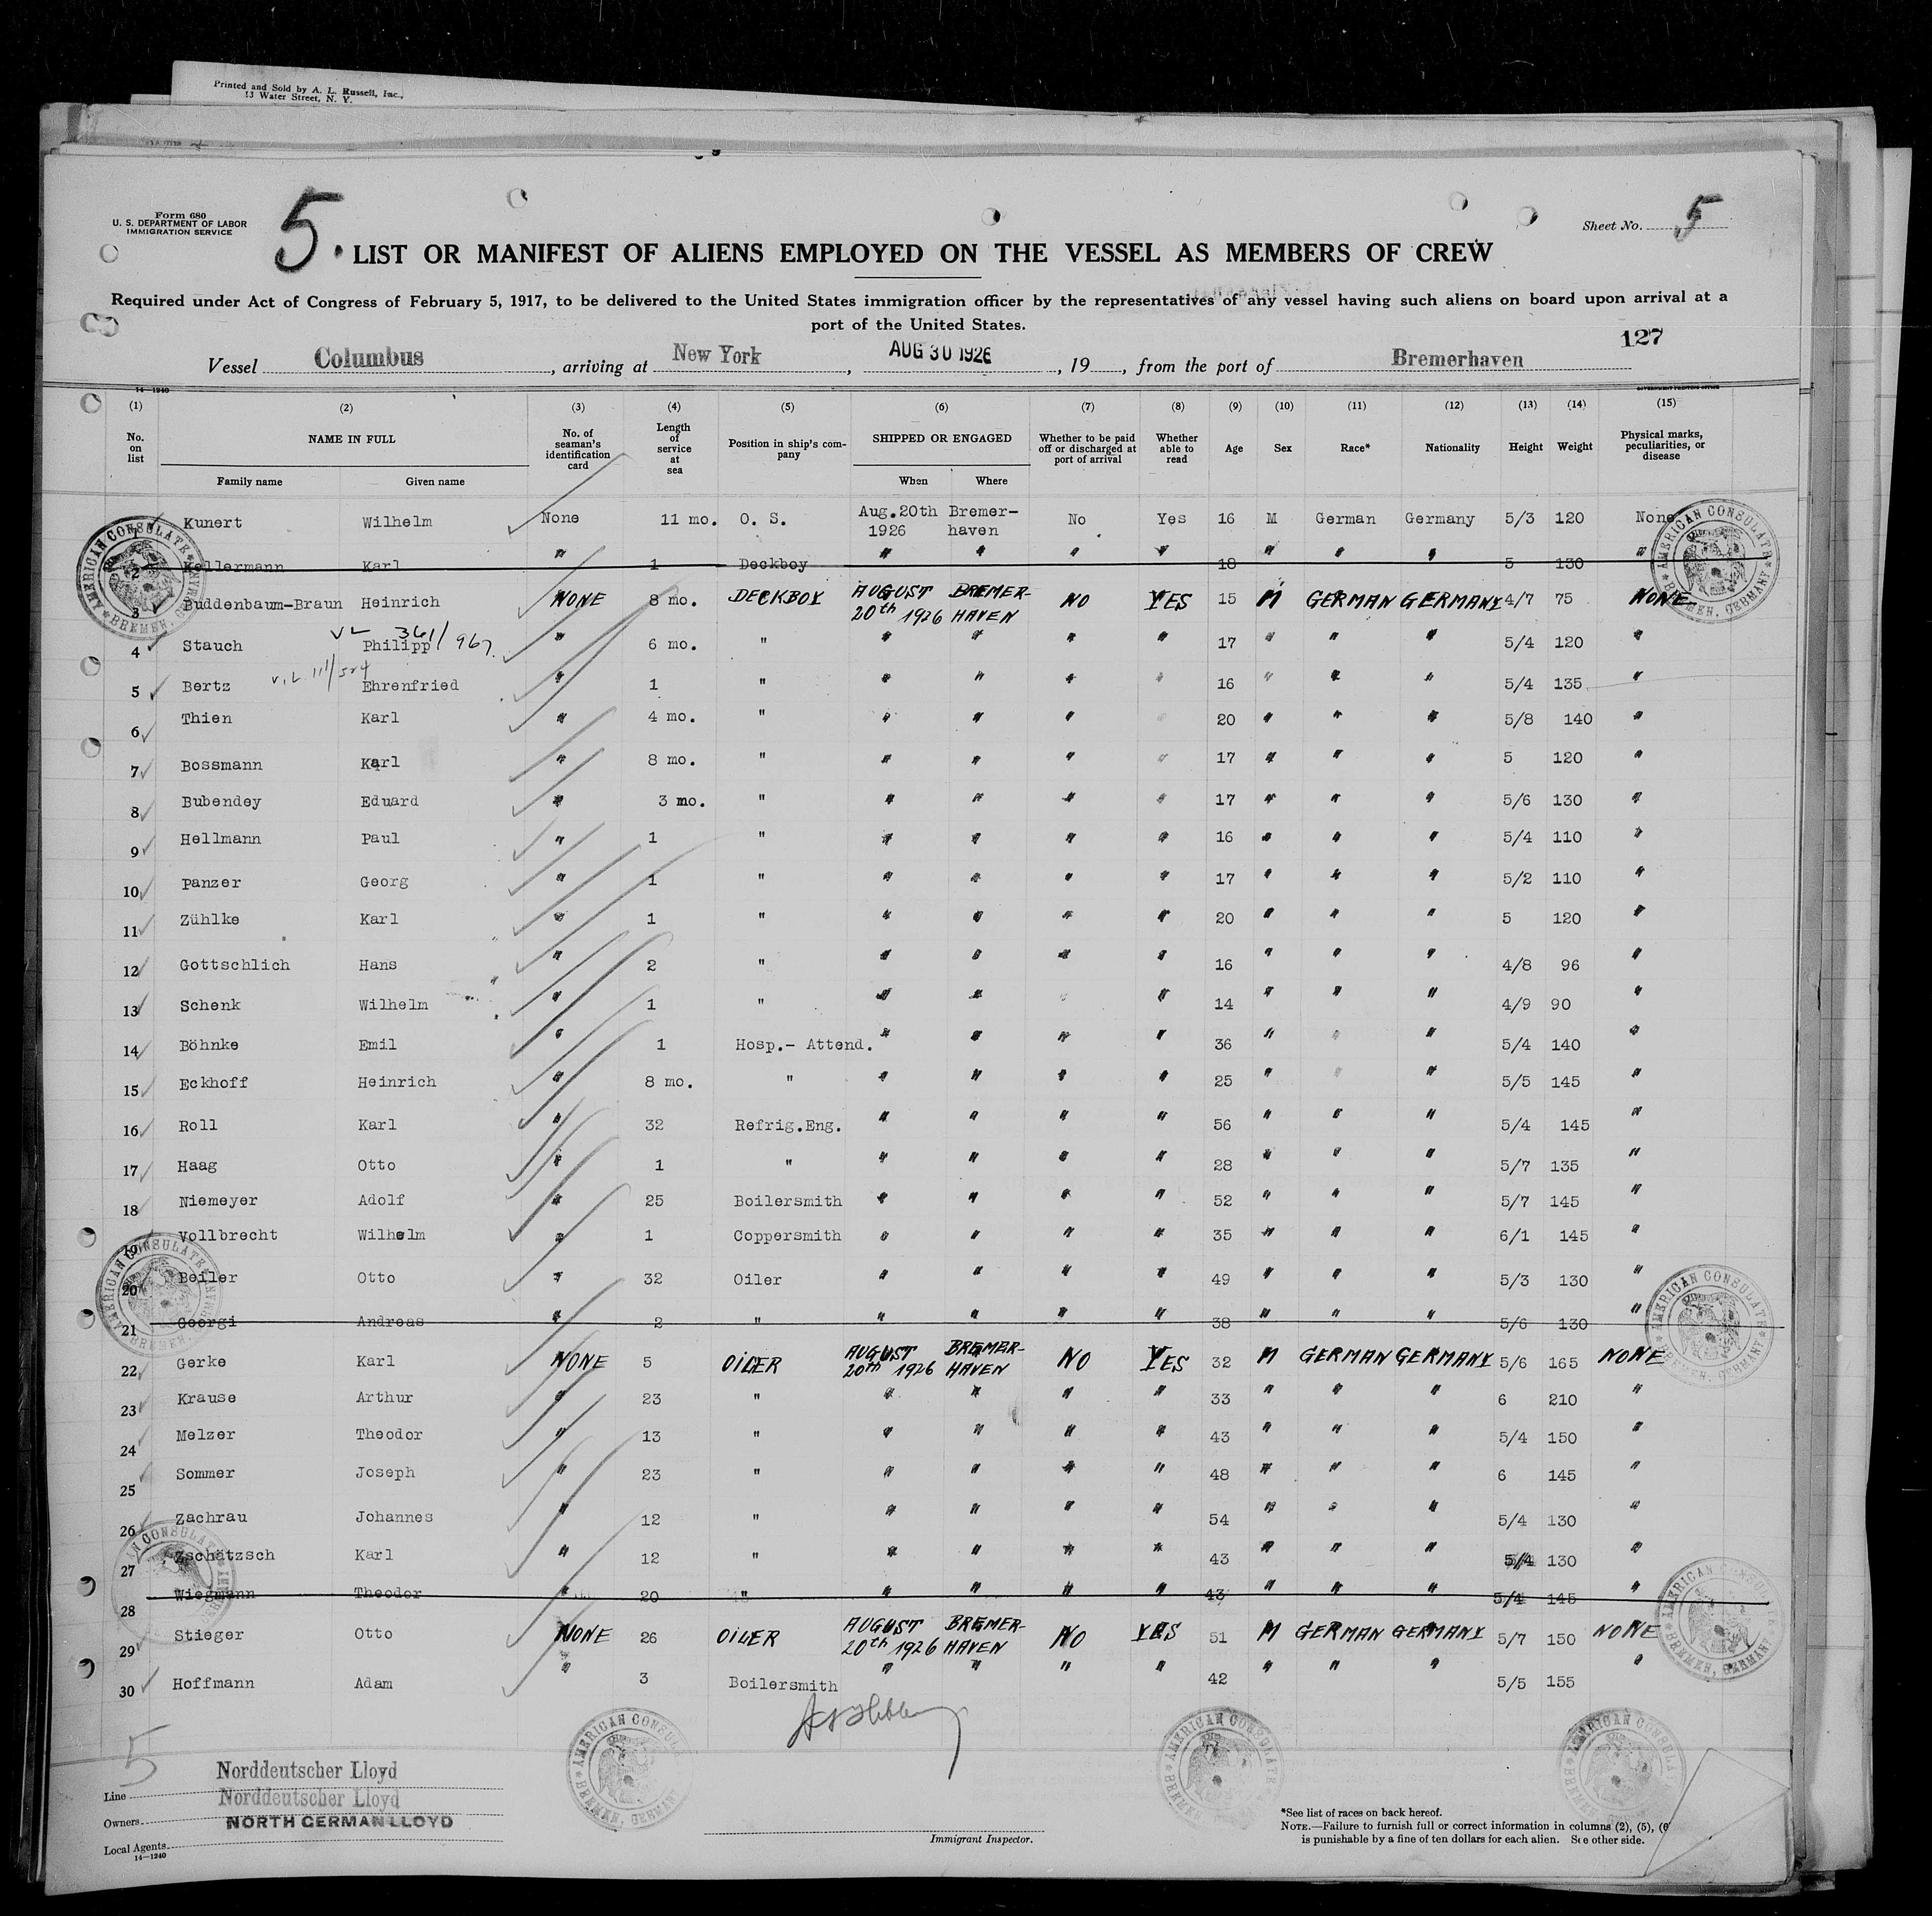 Printed and Sold by A. L. Russell, Inc.,
13 Water Street, N. Y.
Form 680
U. S. DEPARTMENT OF LABOR
IMMIGRATION SERVICE
5.
Sheet No. 5
LIST OR MANIFEST OF ALIENS EMPLOYED ON THE VESSEL AS MEMBERS OF CREW
Required under Act of Congress of February 5, 1917, to be delivered to the United States immigration officer by the representatives of any vessel having such aliens on board upon arrival at a
port of the United States.
127
Vessel Columbus, arriving at New York, AUG 30 1926, 19, from the port of Bremerhaven
14—1240 GOVERNMENT PRINTING OFFICE
(1) (2) (3) (4) (5) (6) (7) (8) (9) (10) (11) (12) (13) (14) (15)
No. on list NAME IN FULL No. of seaman's identification card Length of service at sea Position in ship's company SHIPPED OR ENGAGED Whether to be paid off or discharged at port of arrival Whether able to read Age Sex Race* Nationality Height Weight Physical marks, peculiarities, or disease
Family name Given name When Where
1 Kunert Wilhelm None 11 mo. O. S. Aug.20th 1926 Bremer-haven No Yes 16 M German Germany 5/3 120 None
2 Kellermann Karl " 1 Deckboy " " " " 18 " " " 5 130 "
3 Buddenbaum-Braun Heinrich NONE 8 mo. DECKBOY AUGUST 20th 1926 BREMER-HAVEN NO YES 15 M GERMAN GERMANY 4/7 75 NONE
VL 361/967
4 Stauch Philipp " 6 mo. " " " " " 17 " " " 5/4 120 "
5 Bertz Ehrenfried " 1 " " " " " 16 " " " 5/4 135 "
6 Thien Karl " 4 mo. " " " " " 20 " " " 5/8 140 "
7 Bossmann Karl " 8 mo. " " " " " 17 " " " 5 120 "
8 Bubendey Eduard " 3 mo. " " " " " 17 " " " 5/6 130 "
9 Hellmann Paul " 1 " " " " " 16 " " " 5/4 110 "
10 Panzer Georg " 1 " " " " " 17 " " " 5/2 110 "
11 Zühlke Karl " 1 " " " " " 20 " " " 5 120 "
12 Gottschlich Hans " 2 " " " " " 16 " " " 4/8 96 "
13 Schenk Wilhelm " 1 " " " " " 14 " " " 4/9 90 "
14 Böhnke Emil " 1 Hosp.- Attend. " " " " 36 " " " 5/4 140 "
15 Eckhoff Heinrich " 8 mo. " " " " " 25 " " " 5/5 145 "
16 Roll Karl " 32 Refrig.Eng. " " " " 56 " " " 5/4 145 "
17 Haag Otto " 1 " " " " " 28 " " " 5/7 135 "
18 Niemeyer Adolf " 25 Boilersmith " " " " 52 " " " 5/7 145 "
19 Vollbrecht Wilhelm " 1 Coppersmith " " " " 35 " " " 6/1 145 "
20 Beiler Otto " 32 Oiler " " " " 49 " " " 5/3 130 "
21 Georgi Andreas " 2 " " " " " 38 " " " 5/6 130 "
22 Gerke Karl NONE 5 OILER AUGUST 20th 1926 BREMER-HAVEN NO YES 32 M GERMAN GERMANY 5/6 165 NONE
23 Krause Arthur " 23 " " " " " 33 " " " 6 210 "
24 Melzer Theodor " 13 " " " " " 43 " " " 5/4 150 "
25 Sommer Joseph " 23 " " " " " 48 " " " 6 145 "
26 Zachrau Johannes " 12 " " " " " 54 " " " 5/4 130 "
27 Zschätzsch Karl " 12 " " " " " 43 " " " 5/4 130 "
28 Wiegmann Theodor " 20 " " " " " 43 " " " 5/4 145 "
29 Stieger Otto NONE 26 OILER AUGUST 20th 1926 BREMER-HAVEN NO YES 51 M GERMAN GERMANY 5/7 150 NONE
30 Hoffmann Adam " 3 Boilersmith " " " " 42 " " " 5/5 155 "
AMERICAN CONSULATE BREMEN, GERMANY
5
Line Norddeutscher Lloyd
Owners Norddeutscher Lloyd
Local Agents NORTH GERMAN LLOYD
14—1240
Immigrant Inspector.
*See list of races on back hereof.
NOTE.—Failure to furnish full or correct information in columns (2), (5), (6
is punishable by a fine of ten dollars for each alien. See other side.